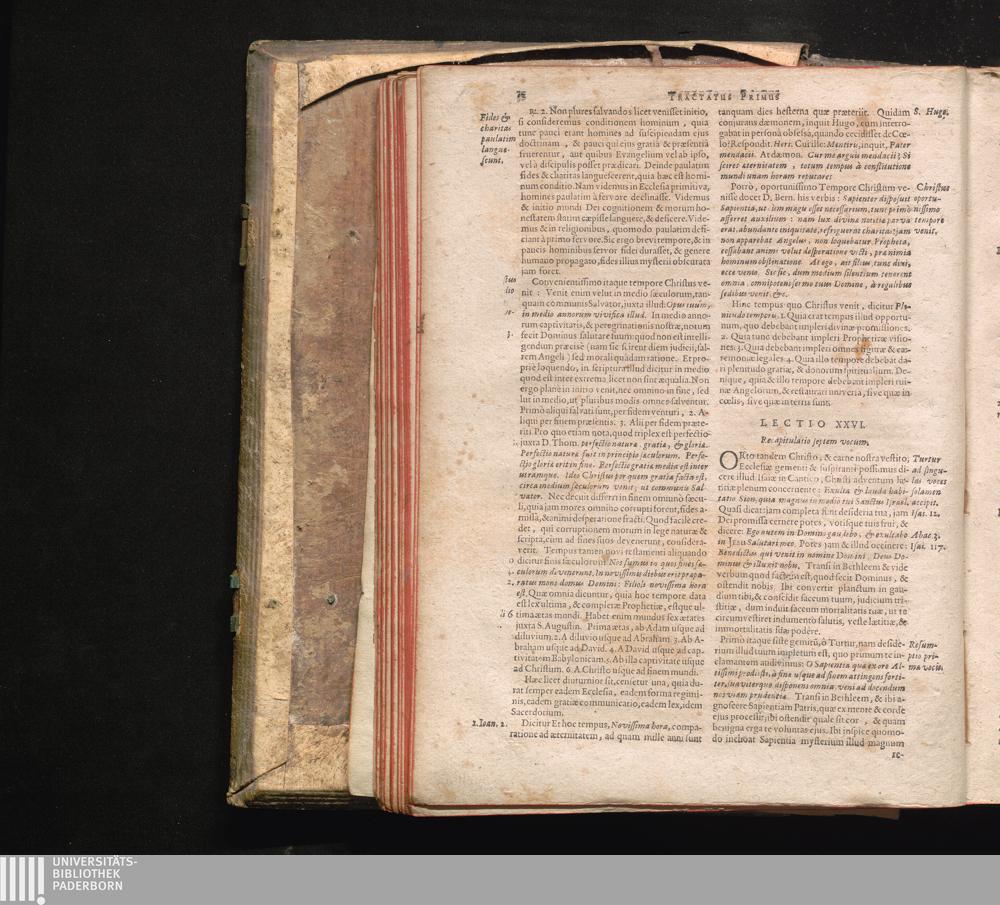 TRACTATUS PRIMUS
Fides &
charitas
paulatim
langue-
scunt.
R. 2. Non plures salvandos licet venisset initio,
si consideremus conditionem hominum, quia
tunc pauci etant homines ad suscipiendam ejus
doctrinam, & pauci qui ejus gratiâ & præsentiâ
fruerentur, aut quibus Evangelium vel ab ipso,
vel à discipulis posset prædicari. Deinde paulatim
fides & charitas languescerent, quia hæc est homi-
num conditio. Nam videmus in Ecclesia primitiva,
homines paulatim à fervore declinasse. Videmus
& initio mundi Dei cognitionem & morum ho-
nestatem statim cæpisse languere, & deficere. Vide-
mus & in religionibus, quomodo paulatim defi-
ciant à primo fervore. Sic ergo brevi tempore, & in
paucis hominibus fervor fidei durasset, & genere
humano propagato, fides illius mysterii obscurata
jam foret.
Convenientissimo itaque tempore Christus ve-
nit: Venit enim velut in medio sæculorum, tan-
quam communis Salvator, juxta illud: Opus tuum,
in medio annorum vivifica illud. In medio anno-
rum captivitatis, & peregrinationis nostræ, notum
fecit Dominus salutare suum: quod non est intelli-
gendum præcisè (nam sic scirent diem judicii, sal-
tem Angeli) sed morali quadam ratione. Et pro-
priè loquendo, in scriptura illud dicitur in medio
quod est inter extrema licet non sint æqualia. Non
ergo planè in initio venit, nec omnino in fine, sed
lut in medio, ut pluribus modis omnes salventur.
Primò aliqui salvati sunt, per fidem venturi, 2. A-
liqui per finem præsentis. 3. Alii per fidem præte-
riti. Pro quo etiam nota, quod triplex est perfectio
juxta D. Thom. perfectio naturæ, gratiæ, & gloriæ.
Perfectio naturæ fuit in principio sæculorum. Perfe-
ctio gloriæ erit in fine. Perfectio gratiæ media est inter
utramque. Ideo Christus per quem gratia facta est,
circa medium sæculorum venit; ut communis Sal-
vator. Nec decuit differri in finem omninò sæcu-
li, quia jam mores omnino corrupti forent, fides a-
missâ, & animi desperatione fracti. Quod facilè cre-
det, qui corruptionem morum in lege naturæ &
scripta, cùm ad fines suos devenerunt, considera-
verit. Tempus tamen novi testamenti aliquando
dicitur finis sæculorum. Nos sumus in quos fines sæ-
culorum devenerunt. In novissimis diebus erit præpa-
ratus mons domus Domini: Filioli novissima hora
est. Quæ omnia dicuntur, quia hoc tempore data
est lex ultima, & completæ Prophetiæ, estque ul-
tima ætas mundi. Habet enim mundus sex ætates
juxta S. Augustin. Prima ætas, ab Adam usque ad
diluvium. 2. A diluvio usque ad Abraham. 3. Ab A-
braham usque ad David. 4. A David usque ad cap-
tivitatem Babylonicam. 5. Ab illa captivitate usque
ad Christum. 6. A Christo usque ad finem mundi.
Hæc licet diuturnior sit, censetur una, quia du-
rat semper eadem Ecclesia, eadem forma regimi-
nis, eadem gratiæ communicatio, eadem lex, idem
Sacerdotium.
1. Ioan. 2.
Dicitur Et hoc tempus, Novissima hora, compa-
ratione ad æternitatem, ad quam mille anni sunt
tanquam dies hesterna quæ præteriit. Quidam
S. Hugo.
conjurans dæmonem, inquit Hugo, cum interro-
gabat in persona obsessa, quando cecidisset de Cœ-
lo? Respondit. Heri. Cui ille: Mentiris, inquit, Pater
mendacii. At dæmon. Cur me arguis mendacii; Si
scires æternitatem, totum tempus à constitutione
mundi unam horam reputares
Porrò, oportunissimo Tempore Christum ve-
nisse docet D. Bern. his verbis: Sapienter disposuit
Sapientia, ut cum magis esset necessarium, tunc primò
afferret auxilium: nam lux divinæ notitiæ parva
erat. abundante iniquitate, refriguerat charitas: jam
non apparebat Angelus, non loquebatur Propheta,
cessabant animi velut desperatione victi, præ nimia
hominum obstinatione. At ego, ait filius, tunc dixi,
ecce venio. Sic sic, dum medium silentium tenerent
omnia, omnipotens sermo tuus Domine, à regalibus
sedibus venit, &c.
Christus
oportu-
nissimo
tempore
venit.
Hinc tempus quo Christus venit, dicitur Ple-
nitudo temporis. 1. Quia erat tempus illud opportu-
num, quo debebant impleri divinæ promissiones.
2. Quia tunc debebant impleri Propheticæ visio-
nes: 3. Quia debebant impleri omnes figuræ & cæ-
remoniæ legales. 4. Quia illo tempore debebat da-
ri plenitudo gratiæ, & donorum spiritualium. De-
nique, quia & illo tempore debebant impleri rui-
næ Angelorum, & restaurari universa, sive quæ in
cœlis, sive quæ in terris sunt.
LECTIO XXVI.
Recapitulatio septem vocum.
ORto tandem Christo, & carne nostra vestito,
Ecclesiæ gementi & suspiranti possumus di-
cere illud Isaiæ in Cantico, Christi adventum læ-
titiæ plenum concernente: Exulta & lauda habi-
tatio Sion, quia magnus in medio tui Sanctus Israel.
Quasi dicat: jam completa sunt desideria tua, jam
Dei promissa cernere potes, votisque tuis frui, &
dicere: Ego autem in Domino gaudebo, & exultabo
in Jesu Salutari meo. Potes jam & illud occinere:
Benedictus qui venit in nomine Domini, Deus Do-
minus & illuxit nobis. Transi in Bethleem & vide
verbum quod factum est, quod fecit Dominus, &
ostendit nobis. Ibi convertit planctum in gau-
dium tibi, & conscidit saccum tuum, judicium tri-
stitiæ, dum induit saccum mortalitatis tuæ, ut te
circumvestiret indumento salutis, veste lætitiæ, &
immortalitatis suæ podere.
Turtur
ad singu-
las voces
solamen
accipit.
Isai. 12.
Abac. 3.
Isai. 117.
Primò itaque siste gemitû, ò Turtur, nam deside-
rium illud tuum impletum est, quo primum te in-
clamantem audivimus: O Sapientia quæ ex ore Al-
tissimi prodisti, à fine usque ad finem attingens forti-
ter, suaviterque disponens omnia, veni ad docendum
nos viam prudentiæ. Transi in Bethleem, & ibi a-
gnoscere Sapientiam Patris, quæ ex mente & corde
ejus processit; ibi ostendit quale sit cor, & quam
benigna erga te voluntas ejus. Ibi inspice quomo-
do inchoat Sapientia mysterium illud magnum
Resum-
ptio pri-
ma vocis.
re-
UNIVERSITÄTS-
BIBLIOTHEK
PADERBORN